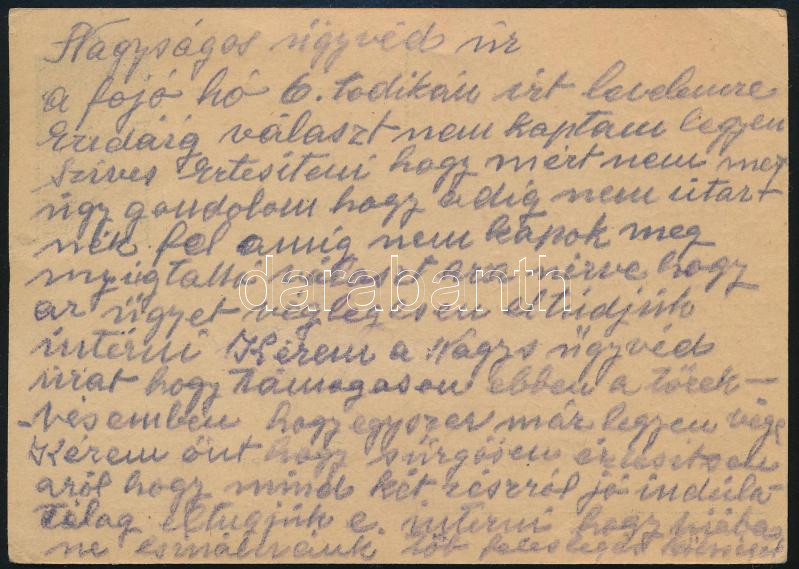 Nagyságos ügyvéd úr
a fojó hó 6. todikán írt levelemre
Ezidáig választ nem kaptam legyen
szíves Értesíteni hogy mért nem mer
úgy gondolom hogy adig nem utaz
nék fel amíg nem kapok meg
nyugtató választ arra nézve hogy
az ügyet véglegesen eltudjuk
intézni Kérem a Nagys ügyvéd
úrat hogy támogason ebben a törek-
-vésemben hogy egyszer már legyen vége
Kérem önt hogy sürgősen értesítsen
aról hogy mind két részről jó indúla-
tólag eltugjuk e. intézni hogy hiába
ne csinálnánk töb felesleges költséget
darabanth